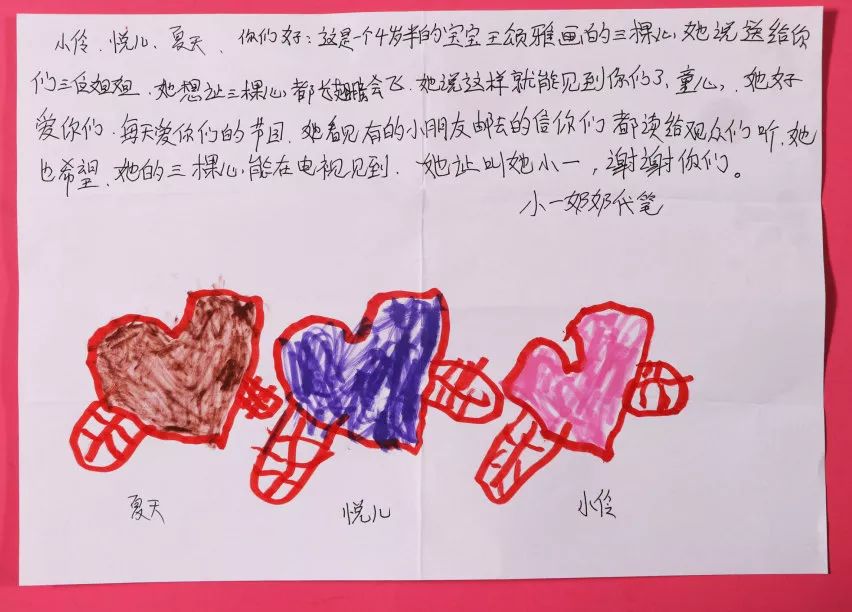 小伶、悦儿、夏天、你们好:这是一个4岁半的宝宝王颂雅画的三棵心,她说送给你
们三白姐姐.她想让三棵心都长翅膀会飞.她说这样就能见到你们了,童心,.她好
爱你们.每天爱你们的节目.她看见有的小朋友邮去的信你们都读给观众们听,她
也希望.她的三棵心能在电视见到.她让叫她小一,谢谢你们。
小一奶奶代笔
夏天
悦儿
小伶